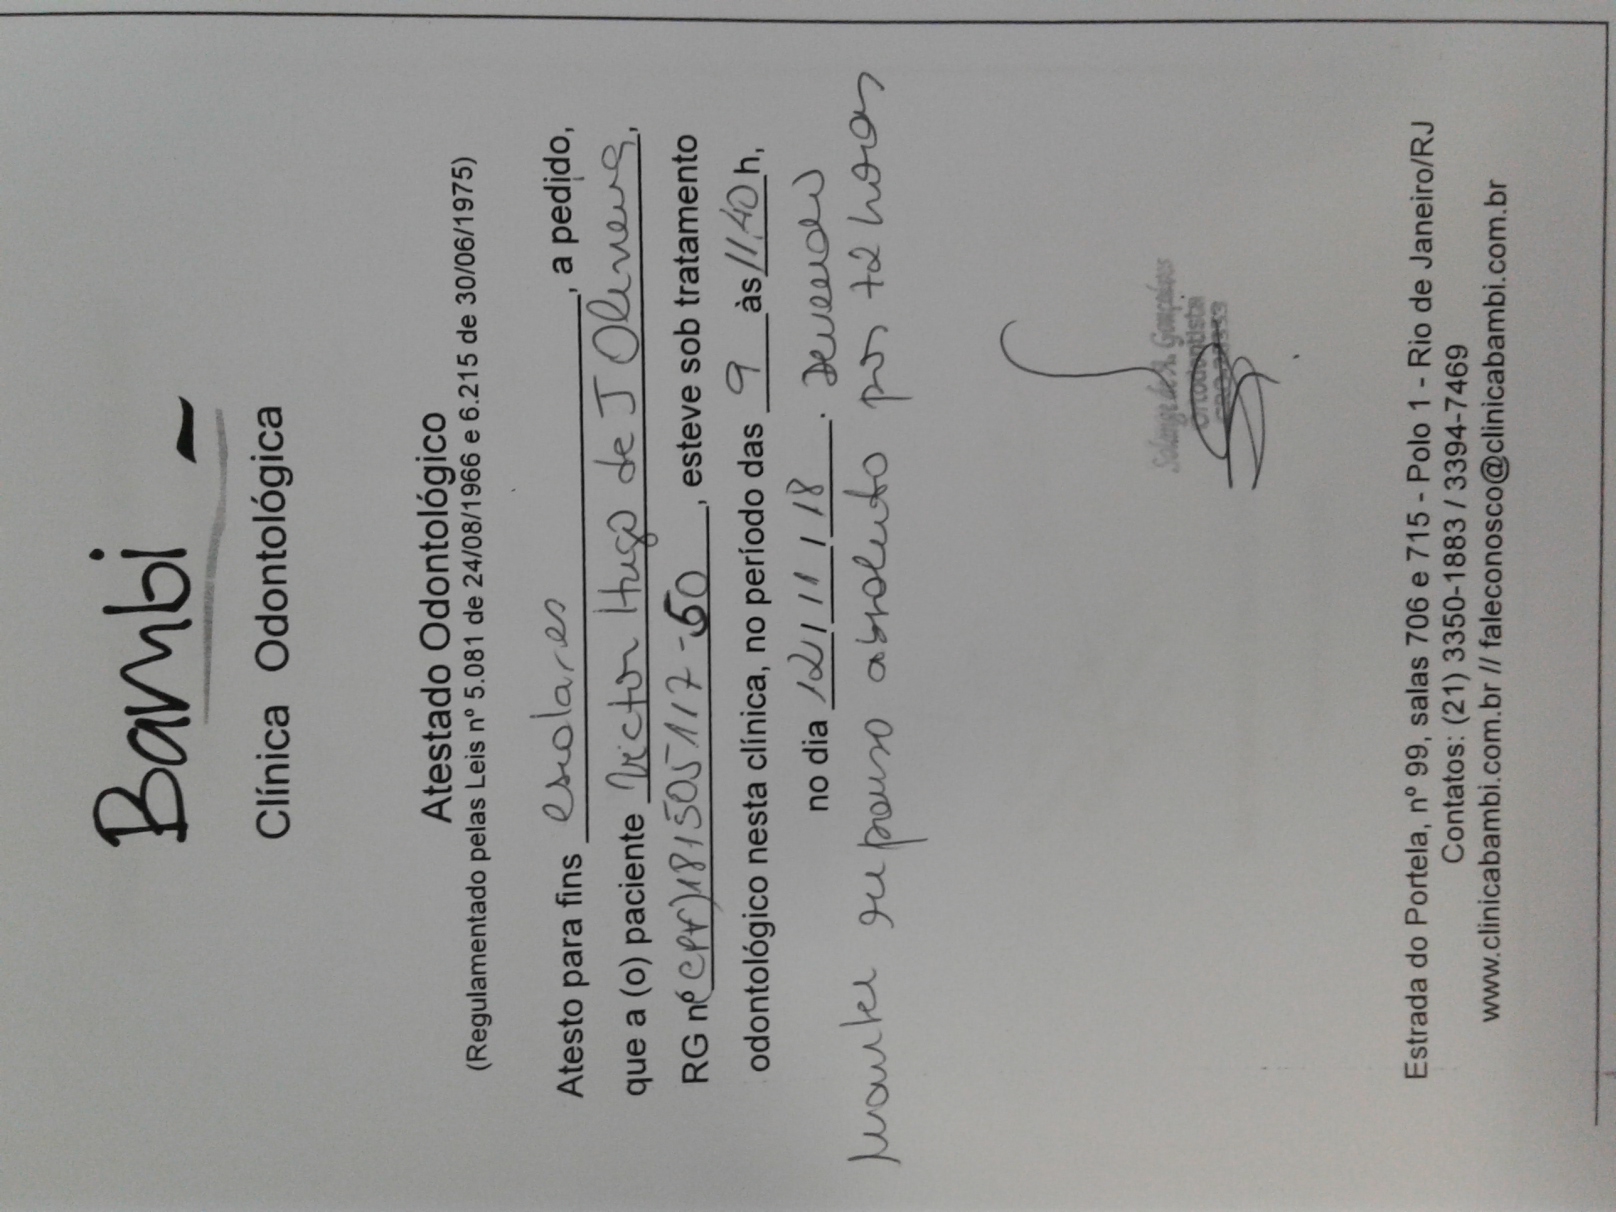 Bambi
Clínica Odontológica
Atestado Odontológico
(Regulamentado pelas Leis nº 5.081 de 24/08/1966 e 6.215 de 30/06/1975)
Atesto para fins escolares, a pedido,
que a (o) paciente Victor Hugo de J Oliveira,
RG nº (CPF) 181505117-50, esteve sob tratamento
odontológico nesta clínica, no período das 9 às 11:40 h,
no dia 12/11/18. Devendo
manter repouso absoluto por 72 horas
Solange de A. Gonçalves
Ortodontista
Estrada do Portela, nº 99, salas 706 e 715 - Polo 1 - Rio de Janeiro/RJ
Contatos: (21) 3350-1883 / 3394-7469
www.clinicabambi.com.br // faleconosco@clinicabambi.com.br